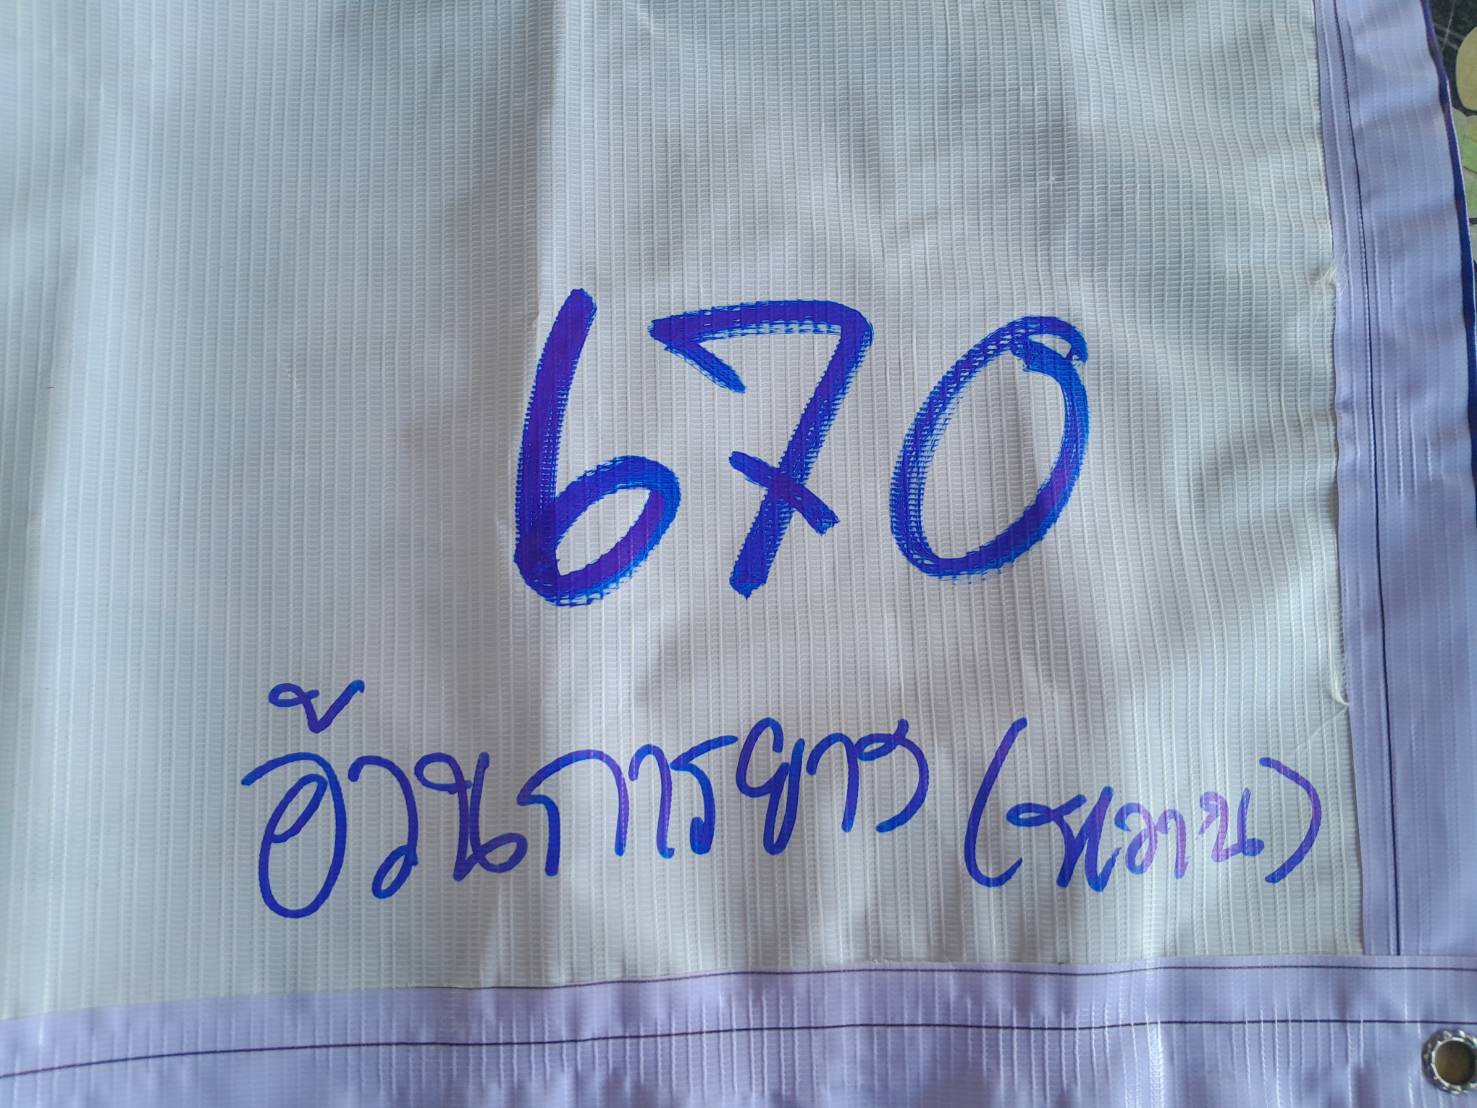 670
อ้วนการยาง (หวาน)